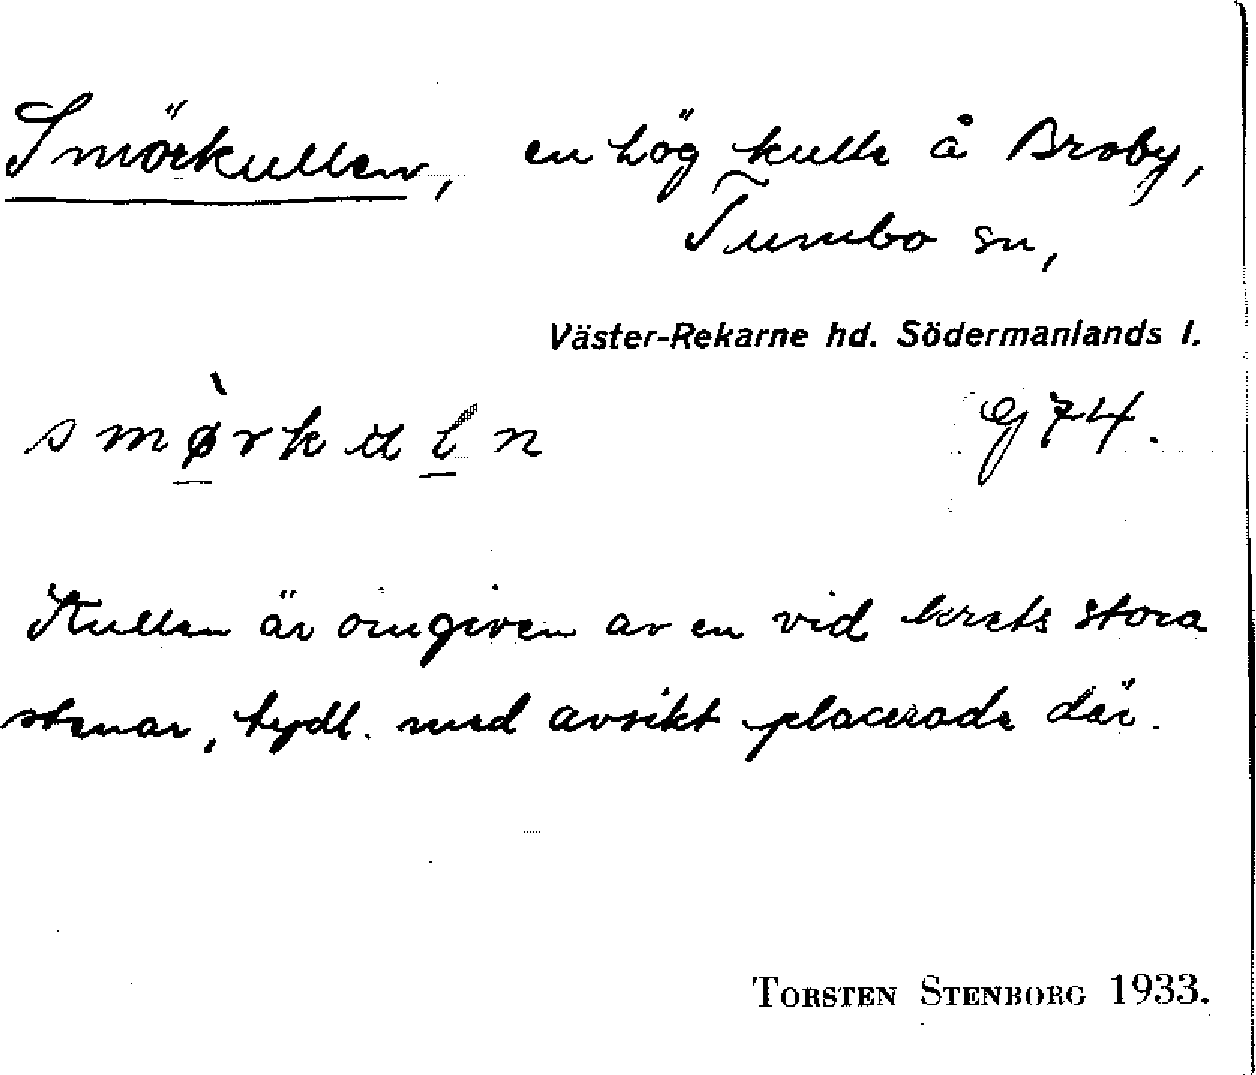 Smörkullen, en hög kulle å Broby,
Tumbo sn,
Väster-Rekarne hd. Södermanlands l.
smø̀rkuln G 74.
Kullen är omgiven av en vid krets stora
stenar, tydl. med avsikt placerade där.
TORSTEN STENBORG 1933.